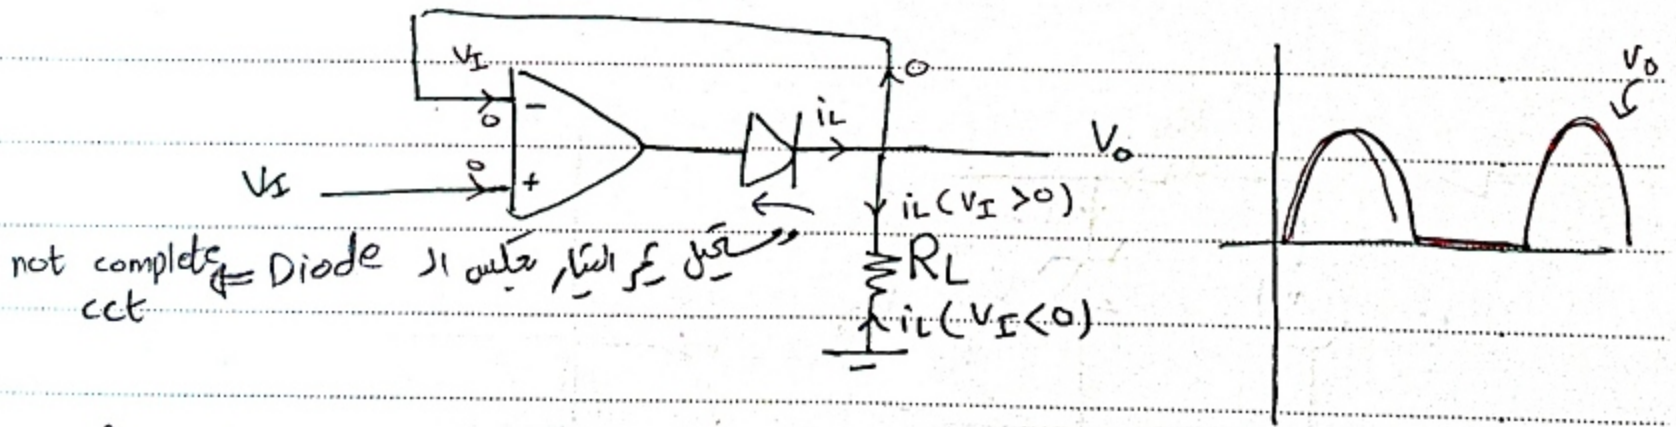 V_I
−
0
0
+
V_I
i_L
0
V_o
i_L (V_I >0)
R_L
i_L (V_I <0)
مستحيل يمر التيار بعكس الـ Diode ⇐ not complete
cct
V_o